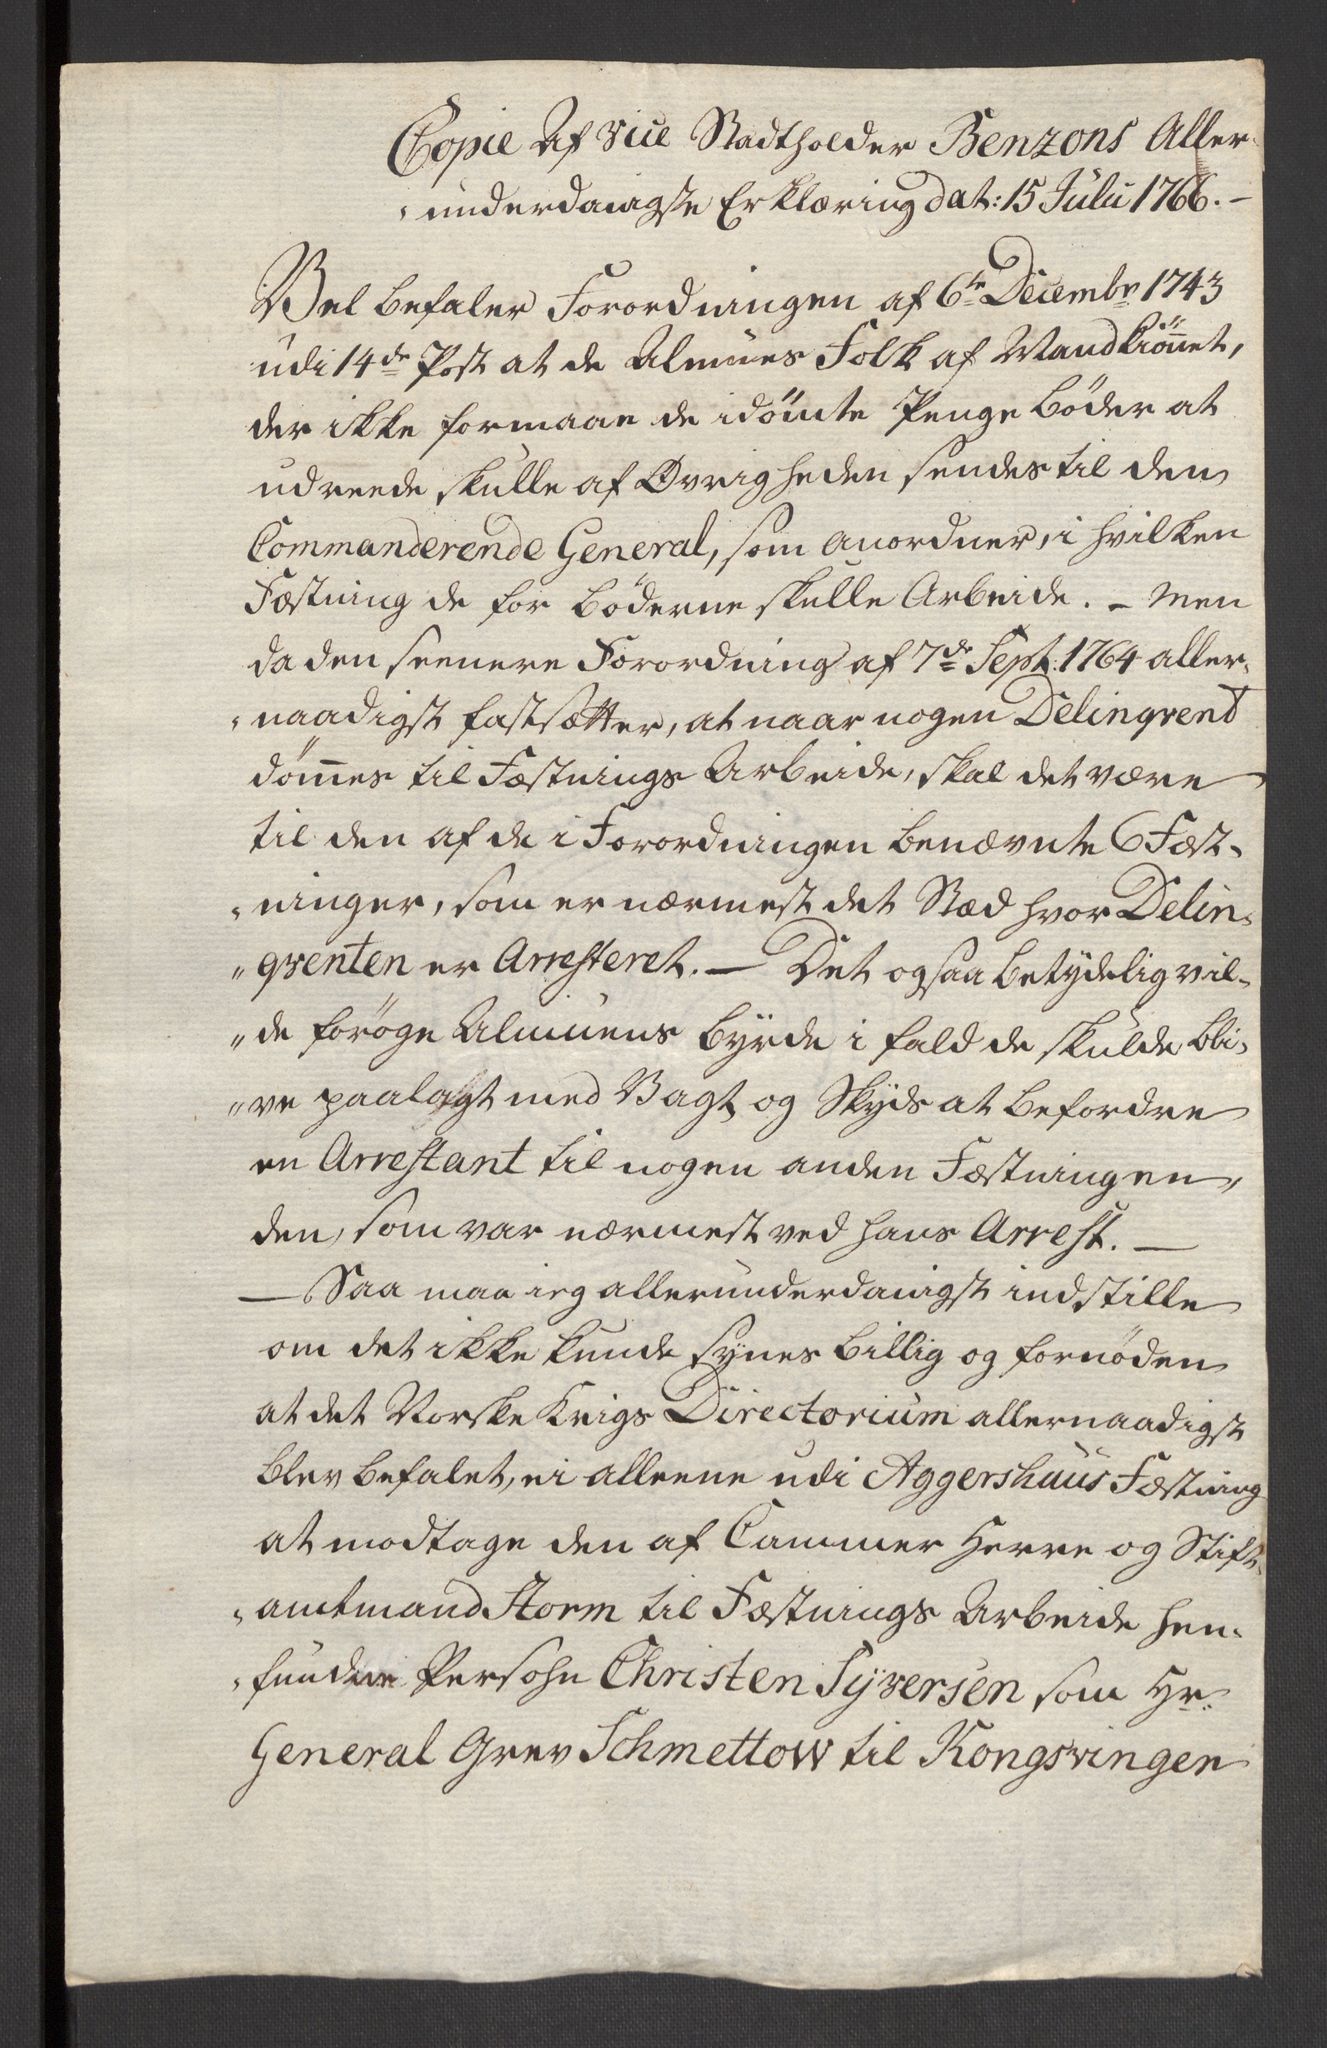 Copie Af Vice Stadtholder Benzons Aller-
-underdanigste Erklæring dat: 15 Julii 1766. -
Vel befaler Forordningen af 6te Decembr 1743
udi 14de Post at de Almues Folk af Mandkiönnet,
der ikke formaae de idömte Penge böder at
udreede skulle af Øvrigheden sendes til den
Commanderende General, som anordner, i hvilken
Fæstning de for böderne skulle Arbeide. - Men
da den seenere Forordning af 7de Sept: 1764 aller-
-naadigst fastsætter, at naar nogen Delinqvent
dömmes til Fæstnings Arbeide, skal det være
til den af de i Forordningen benævnte 6 Fæst-
-ninger, som er nærmest det Stæd hvor Delin-
"qventen er Arresteret. - Det ogsaa betydelig vil-
"de foröge Almuens byrde i fald de skulde bli-
"ve paalagt med Vagt og Skyds at befordre
en Arrestant til nogen anden Fæstning en,
den, som var nærmest ved hans Arrest. -
- Saa maa ieg allerunderdanigst indstille
om det ikke kunde synes billig og fornöden
at det Norske Krigs Directorium allernaadigst
blev befalet, ei alleene udi Aggershuus Fæstning
at modtage den af Cammer Herre og Stift-
-amtmand Storm til Fæstnings Arbeide hen-
-fundne Persohn Christen Syversen som Hr.
General Grev Schmettow til Kongsvinger